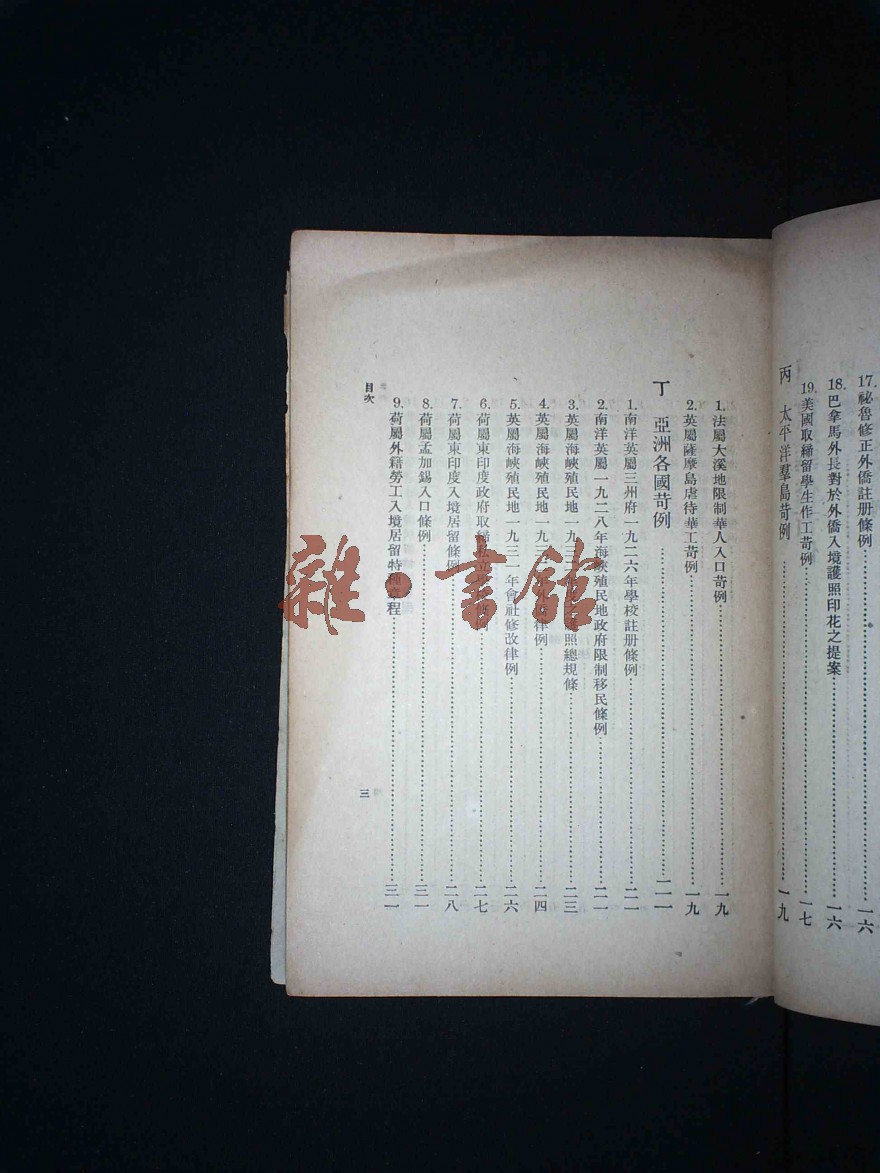 17. 祕魯修正外僑註册條例……一六
18. 巴拿馬外長對於外僑入境護照印花之提案……一六
19. 美國取締留學生作工苛例……一七
丙 太平洋羣島苛例……一九
1. 法屬大溪地限制華人入口苛例……一九
2. 英屬薩摩島虐待華工苛例……一九
丁 亞洲各國苛例……二一
1. 南洋英屬三州府一九二六年學校註册條例……二一
2. 南洋英屬一九二八年海峽殖民地政府限制移民條例……二一
3. 英屬海峽殖民地一九三 照總規條……二三
4. 英屬海峽殖民地一九三 律例……二四
5. 英屬海峽殖民地一九三一年會社修改律例……二六
6. 荷屬東印度政府取締私立 ……二七
7. 荷屬東印度入境居留條例……二八
8. 荷屬孟加錫入口條例……三一
9. 荷屬外籍勞工入境居留特種章程……三一
目次
三
雜·書館